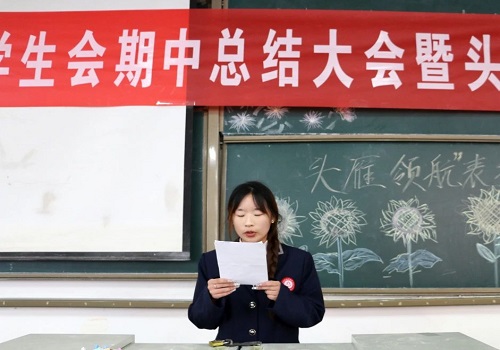 学生会期中总结大会暨头
头雁领航"表